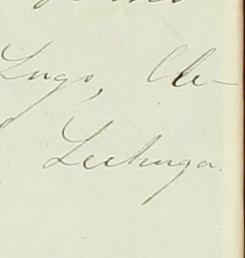 Lugo, Cle-
Lechuga.